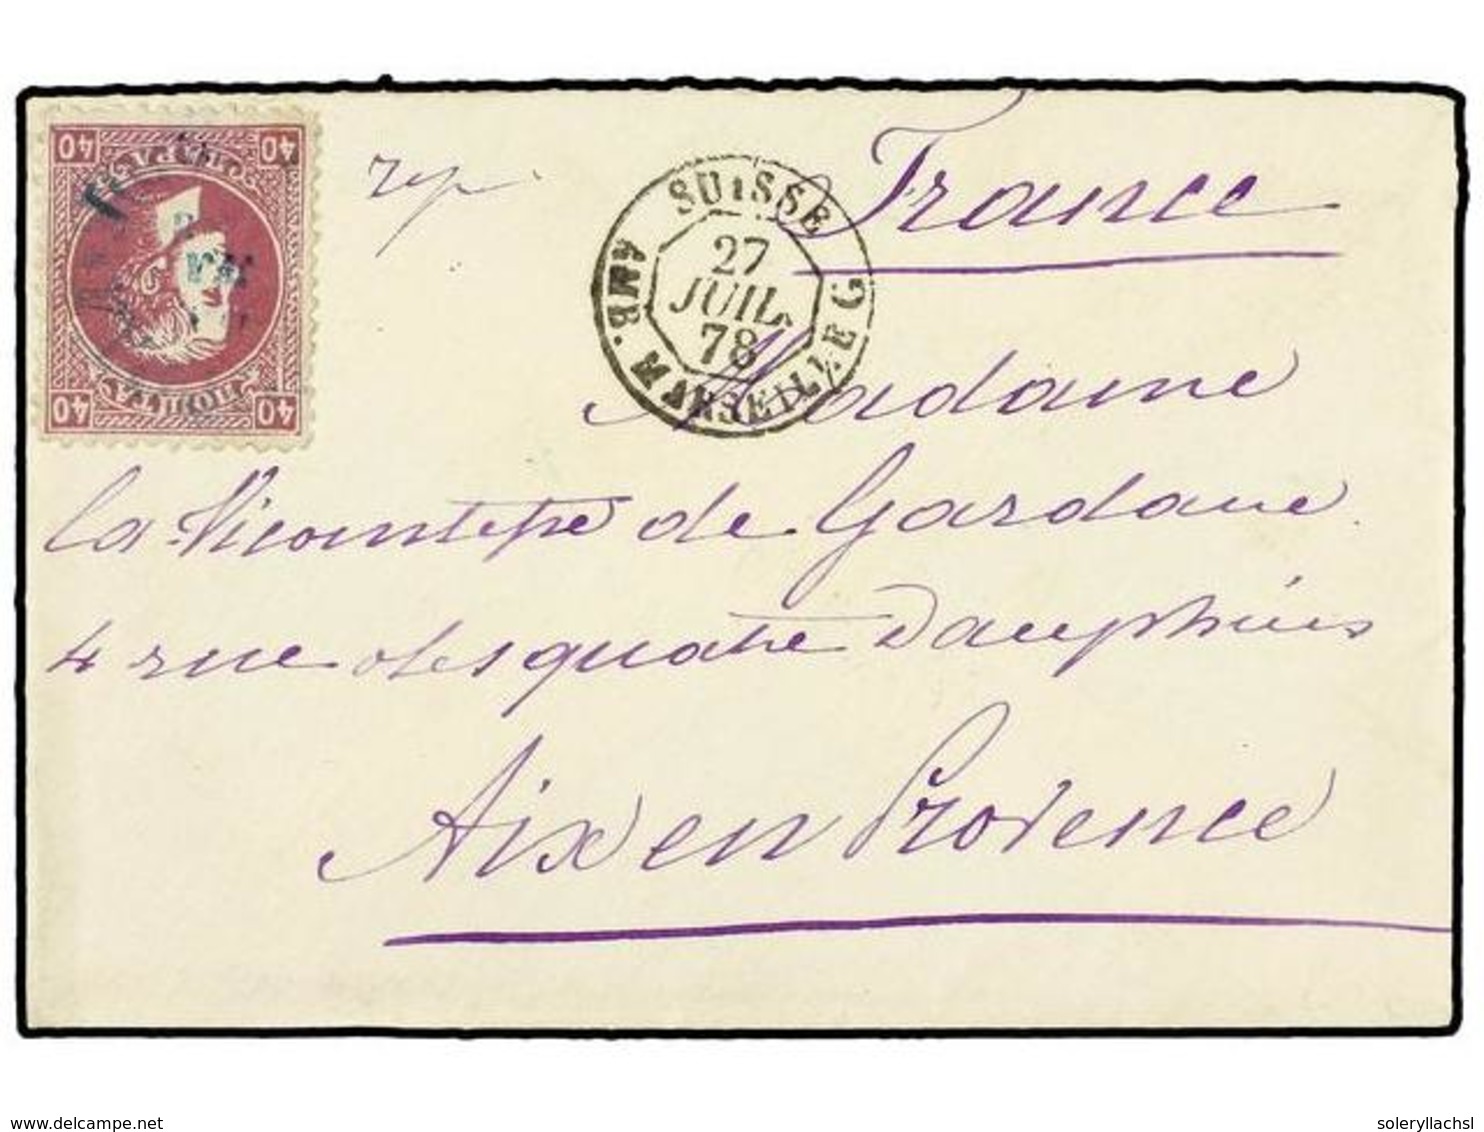 40 40
40 40
France
SUISSE
27
JUIL.
78
AMB. MARSEILLE G
Madame
la Vicomtesse de Gardane
4 rue des quatre Dauphins
Aix en Provence
www.delcampe.net
soleryllachsl